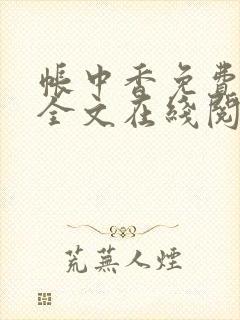 帳中香免費
全文在綫閱
荒蕪人煙